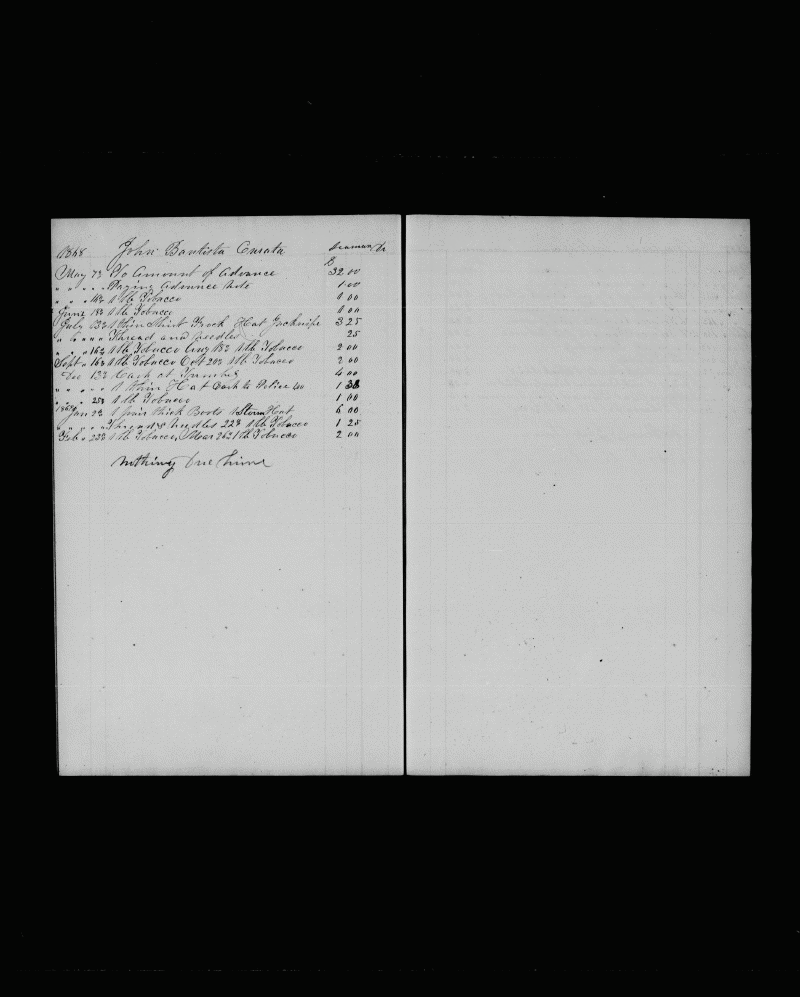 1868 John Bautista Seaman Dr
$
May 7th To Amount of Advance 32 00
" " " " Paying Advance Note 1 00
" " " 1 lb Tobacco 1 00
June 18th 1 lb Tobacco 1 00
July 13th 1 Thin Shirt Frock Hat Jacknife 3 25
" " " " Thread and Needles 25
" " 16th 1 lb Tobacco Aug 18th 1 lb Tobacco 2 00
Sept " 16th 1 lb Tobacco Oct 20th 1 lb Tobacco 2 00
Dec 13th Cash at Tumbes 4 00
" " " " 1 thin Hat Cash to Police 1
" " " 25th 1 lb Tobacco 1 00
1869 Jan 2d 1 pair thick Boots 1 Hat 6 00
" " " " Thread & Needles 22d 1 lb Tobacco 1 25
Feb " 22d 1 lb Tobacco, Mar 26 1 lb Tobacco 2 00
Nothing Due him